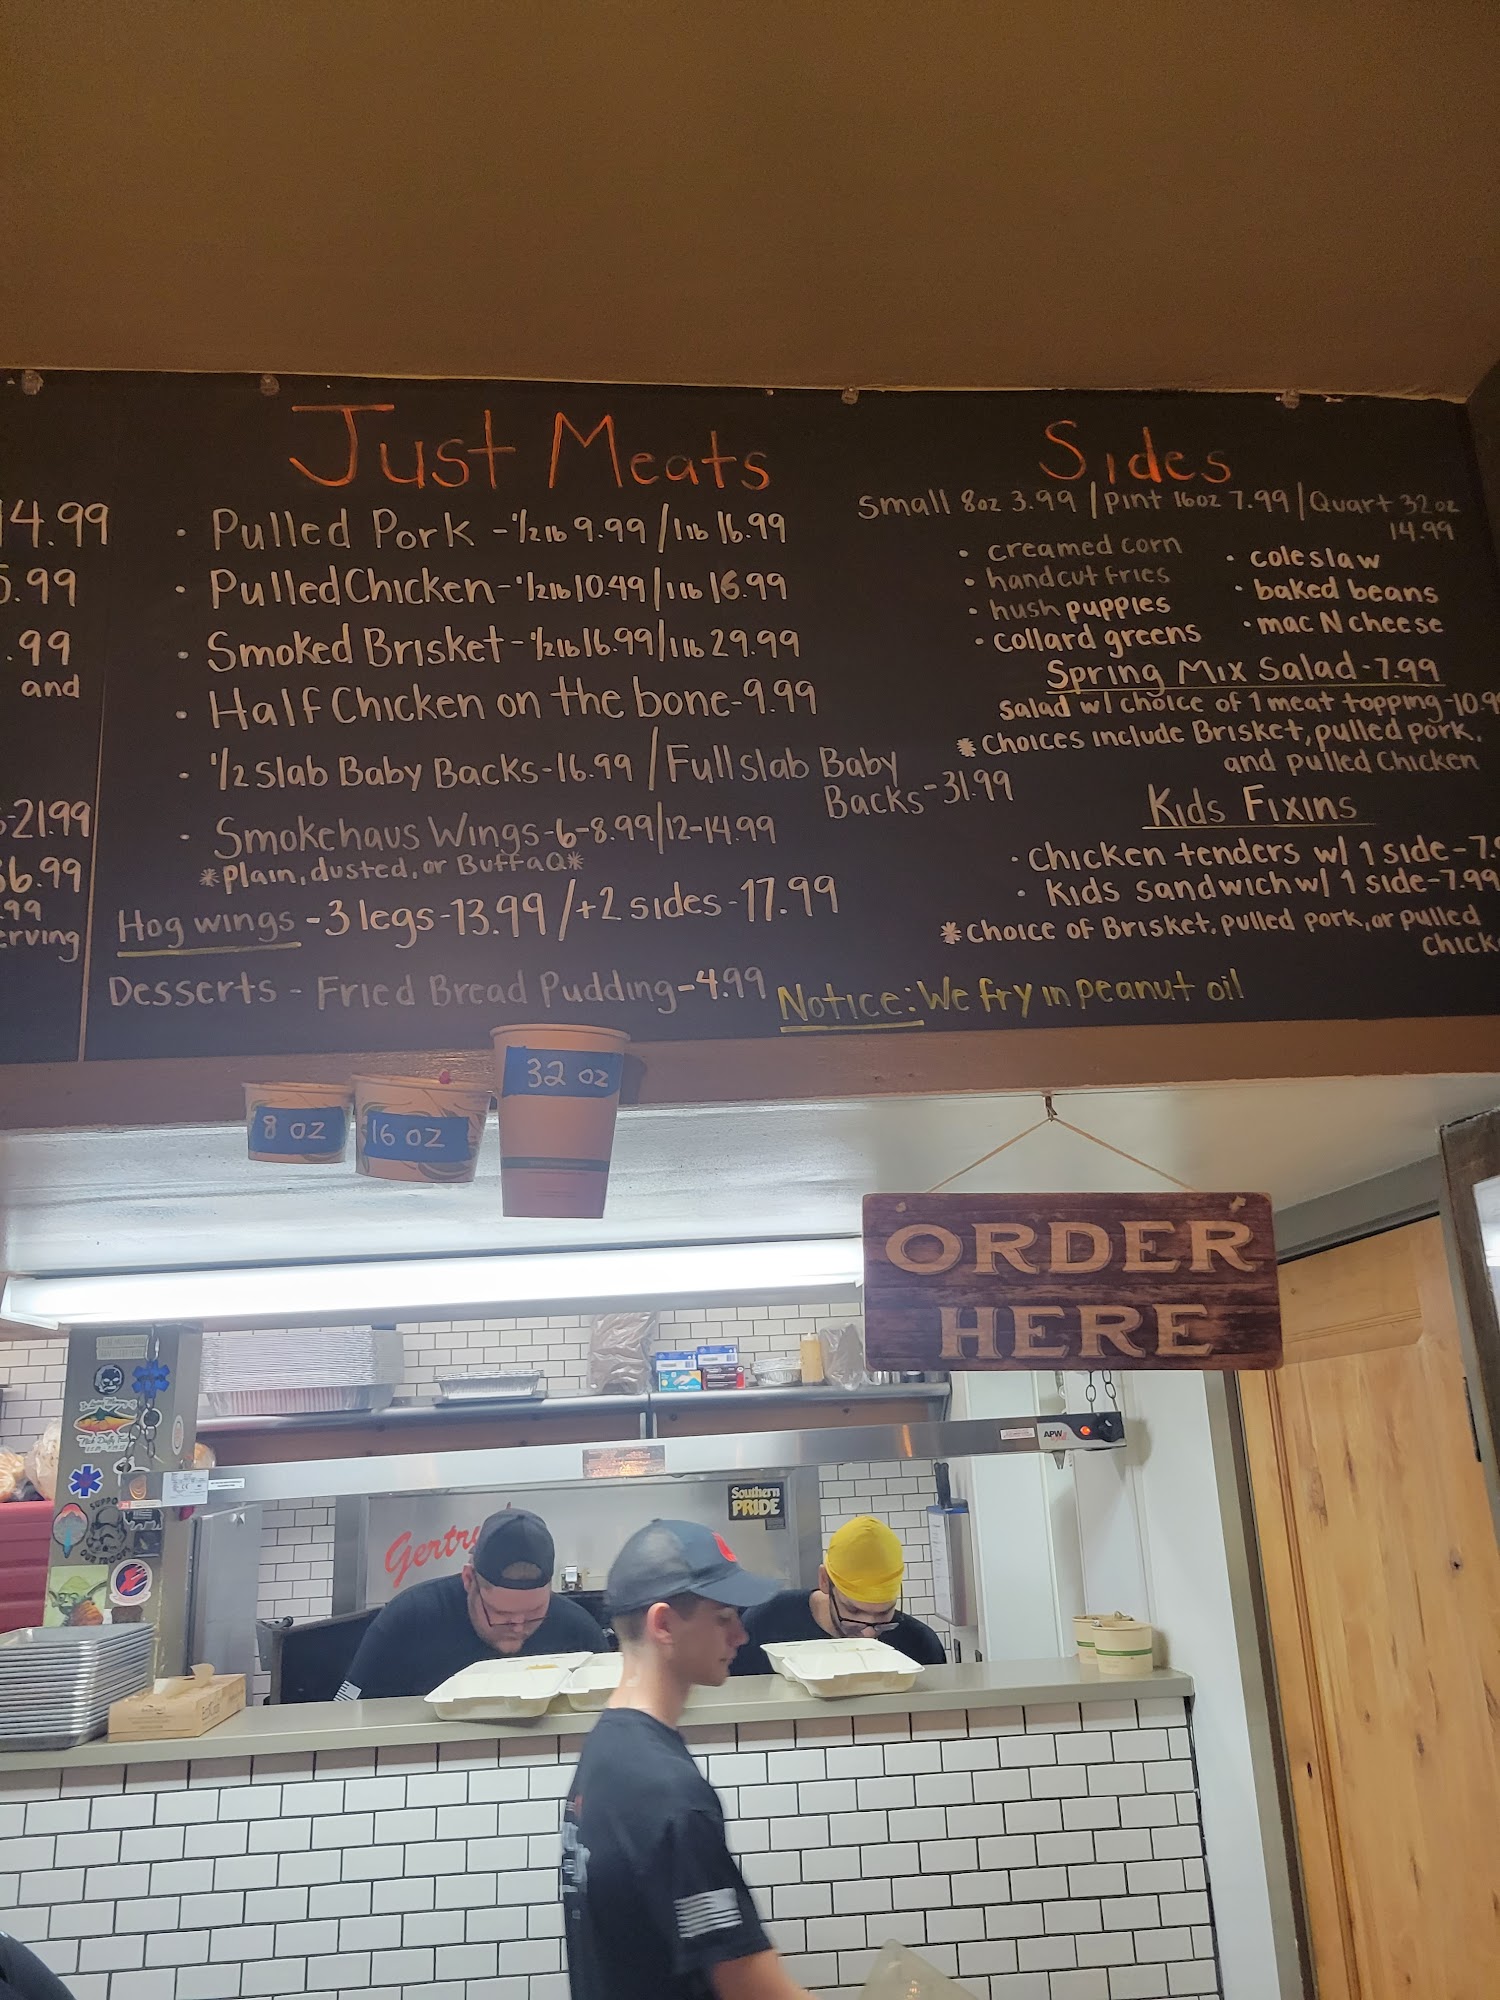 14.99
5.99
.99
and
-21.99
36.99
.99
erving
Just Meats
• Pulled Pork - 1/2 lb 9.99 / 1 lb 16.99
• Pulled Chicken - 1/2 lb 10.49 / 1 lb 16.99
• Smoked Brisket - 1/2 lb 16.99 / 1 lb 29.99
• Half Chicken on the bone - 9.99
• 1/2 Slab Baby Backs - 16.99 / Full slab Baby
Backs - 31.99
• Smokehaus Wings - 6 - 8.99 / 12 - 14.99
*Plain, dusted, or BuffaQ*
Hog wings - 3 legs - 13.99 / + 2 sides - 17.99
Desserts - Fried Bread Pudding - 4.99
Sides
Small 8oz 3.99 / Pint 16oz 7.99 / Quart 32oz
14.99
• creamed corn
• handcut fries
• hush puppies
• collard greens
• coleslaw
• baked beans
• mac N cheese
Spring Mix Salad - 7.99
Salad w/ choice of 1 meat topping - 10.9
* Choices include Brisket, pulled pork,
and pulled Chicken
Kids Fixins
• Chicken tenders w/ 1 side - 7.9
• Kids sandwich w/ 1 side - 7.99
* Choice of Brisket, pulled pork, or pulled
chick
Notice: We fry in peanut oil
8 OZ
16 OZ
32 OZ
ORDER
HERE
APW
Southern
PRIDE
Gertru